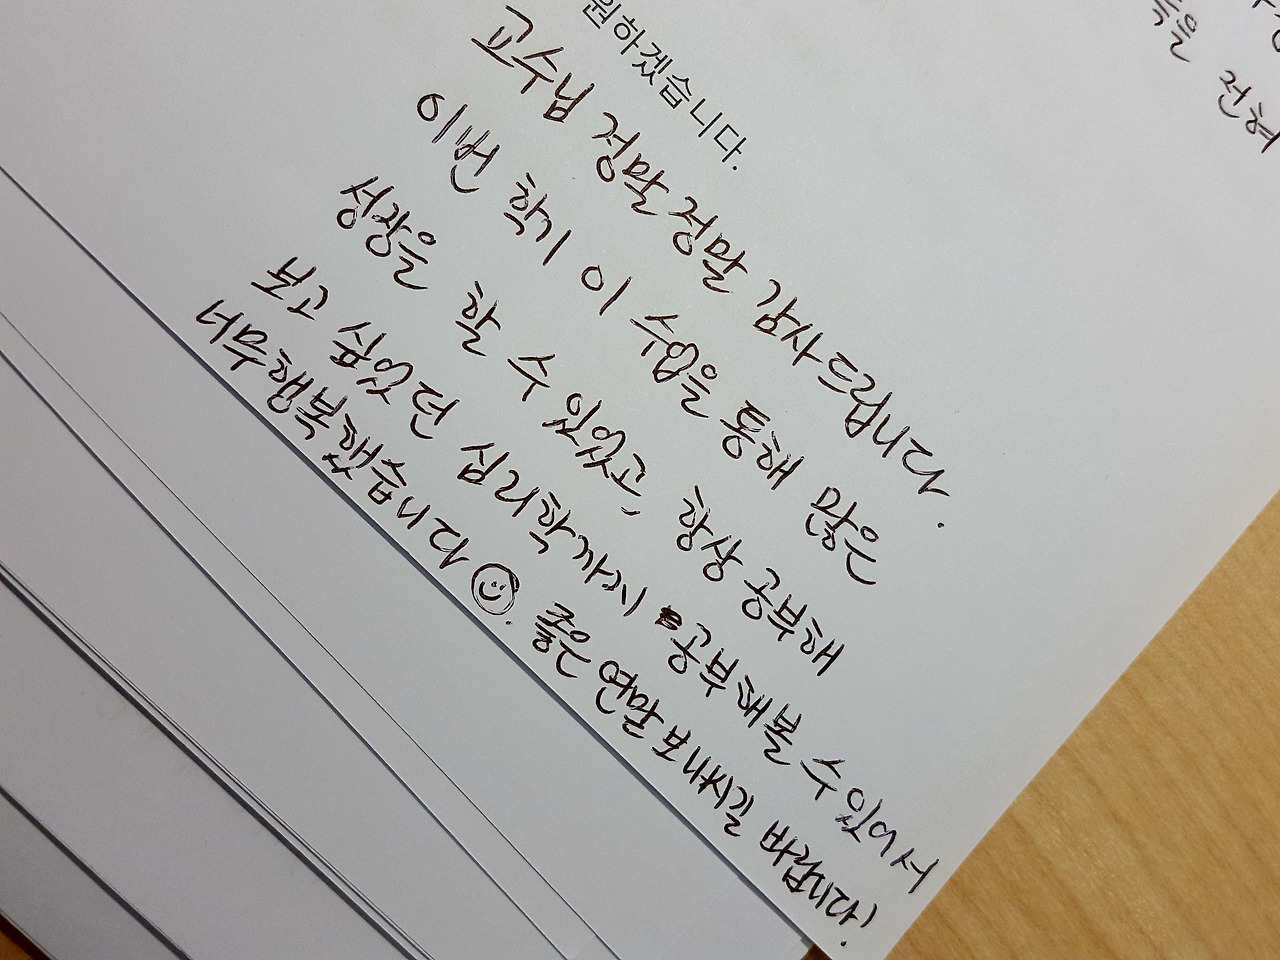 원하겠습니다.
교수님 정말 정말 감사드립니다.
이번 학기 이 수업을 통해 많은
성장을 할 수 있었고, 항상 공부해
보고 싶었던 심리학까지 공부해볼 수 있어서
너무 행복했습니다 ☺. 좋은 연말 되시길 바랍니다.
득을 전혀